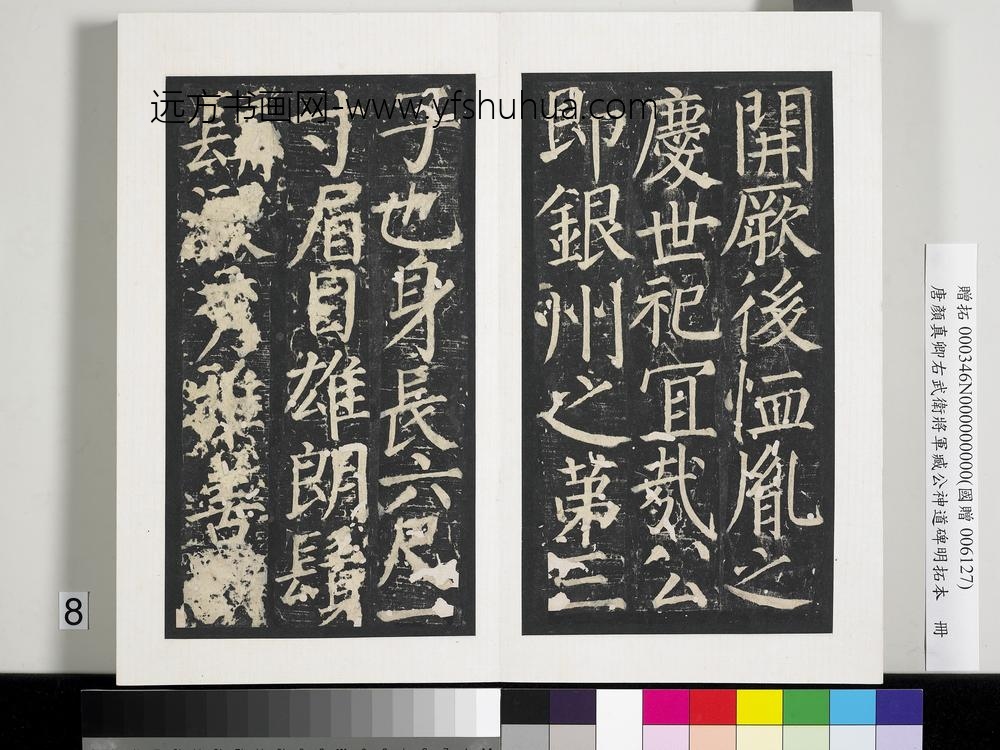 開厥後恤胤之
慶世祀宜哉公
即銀州之第三
子也身長六尺一
寸眉目雄朗鬚
秀雅善
远方书画网-www.yfshuhua.com
贈拓 000346N000000000(國贈 006127)
唐顏真卿右武衛將軍臧公神道碑明拓本 冊
8